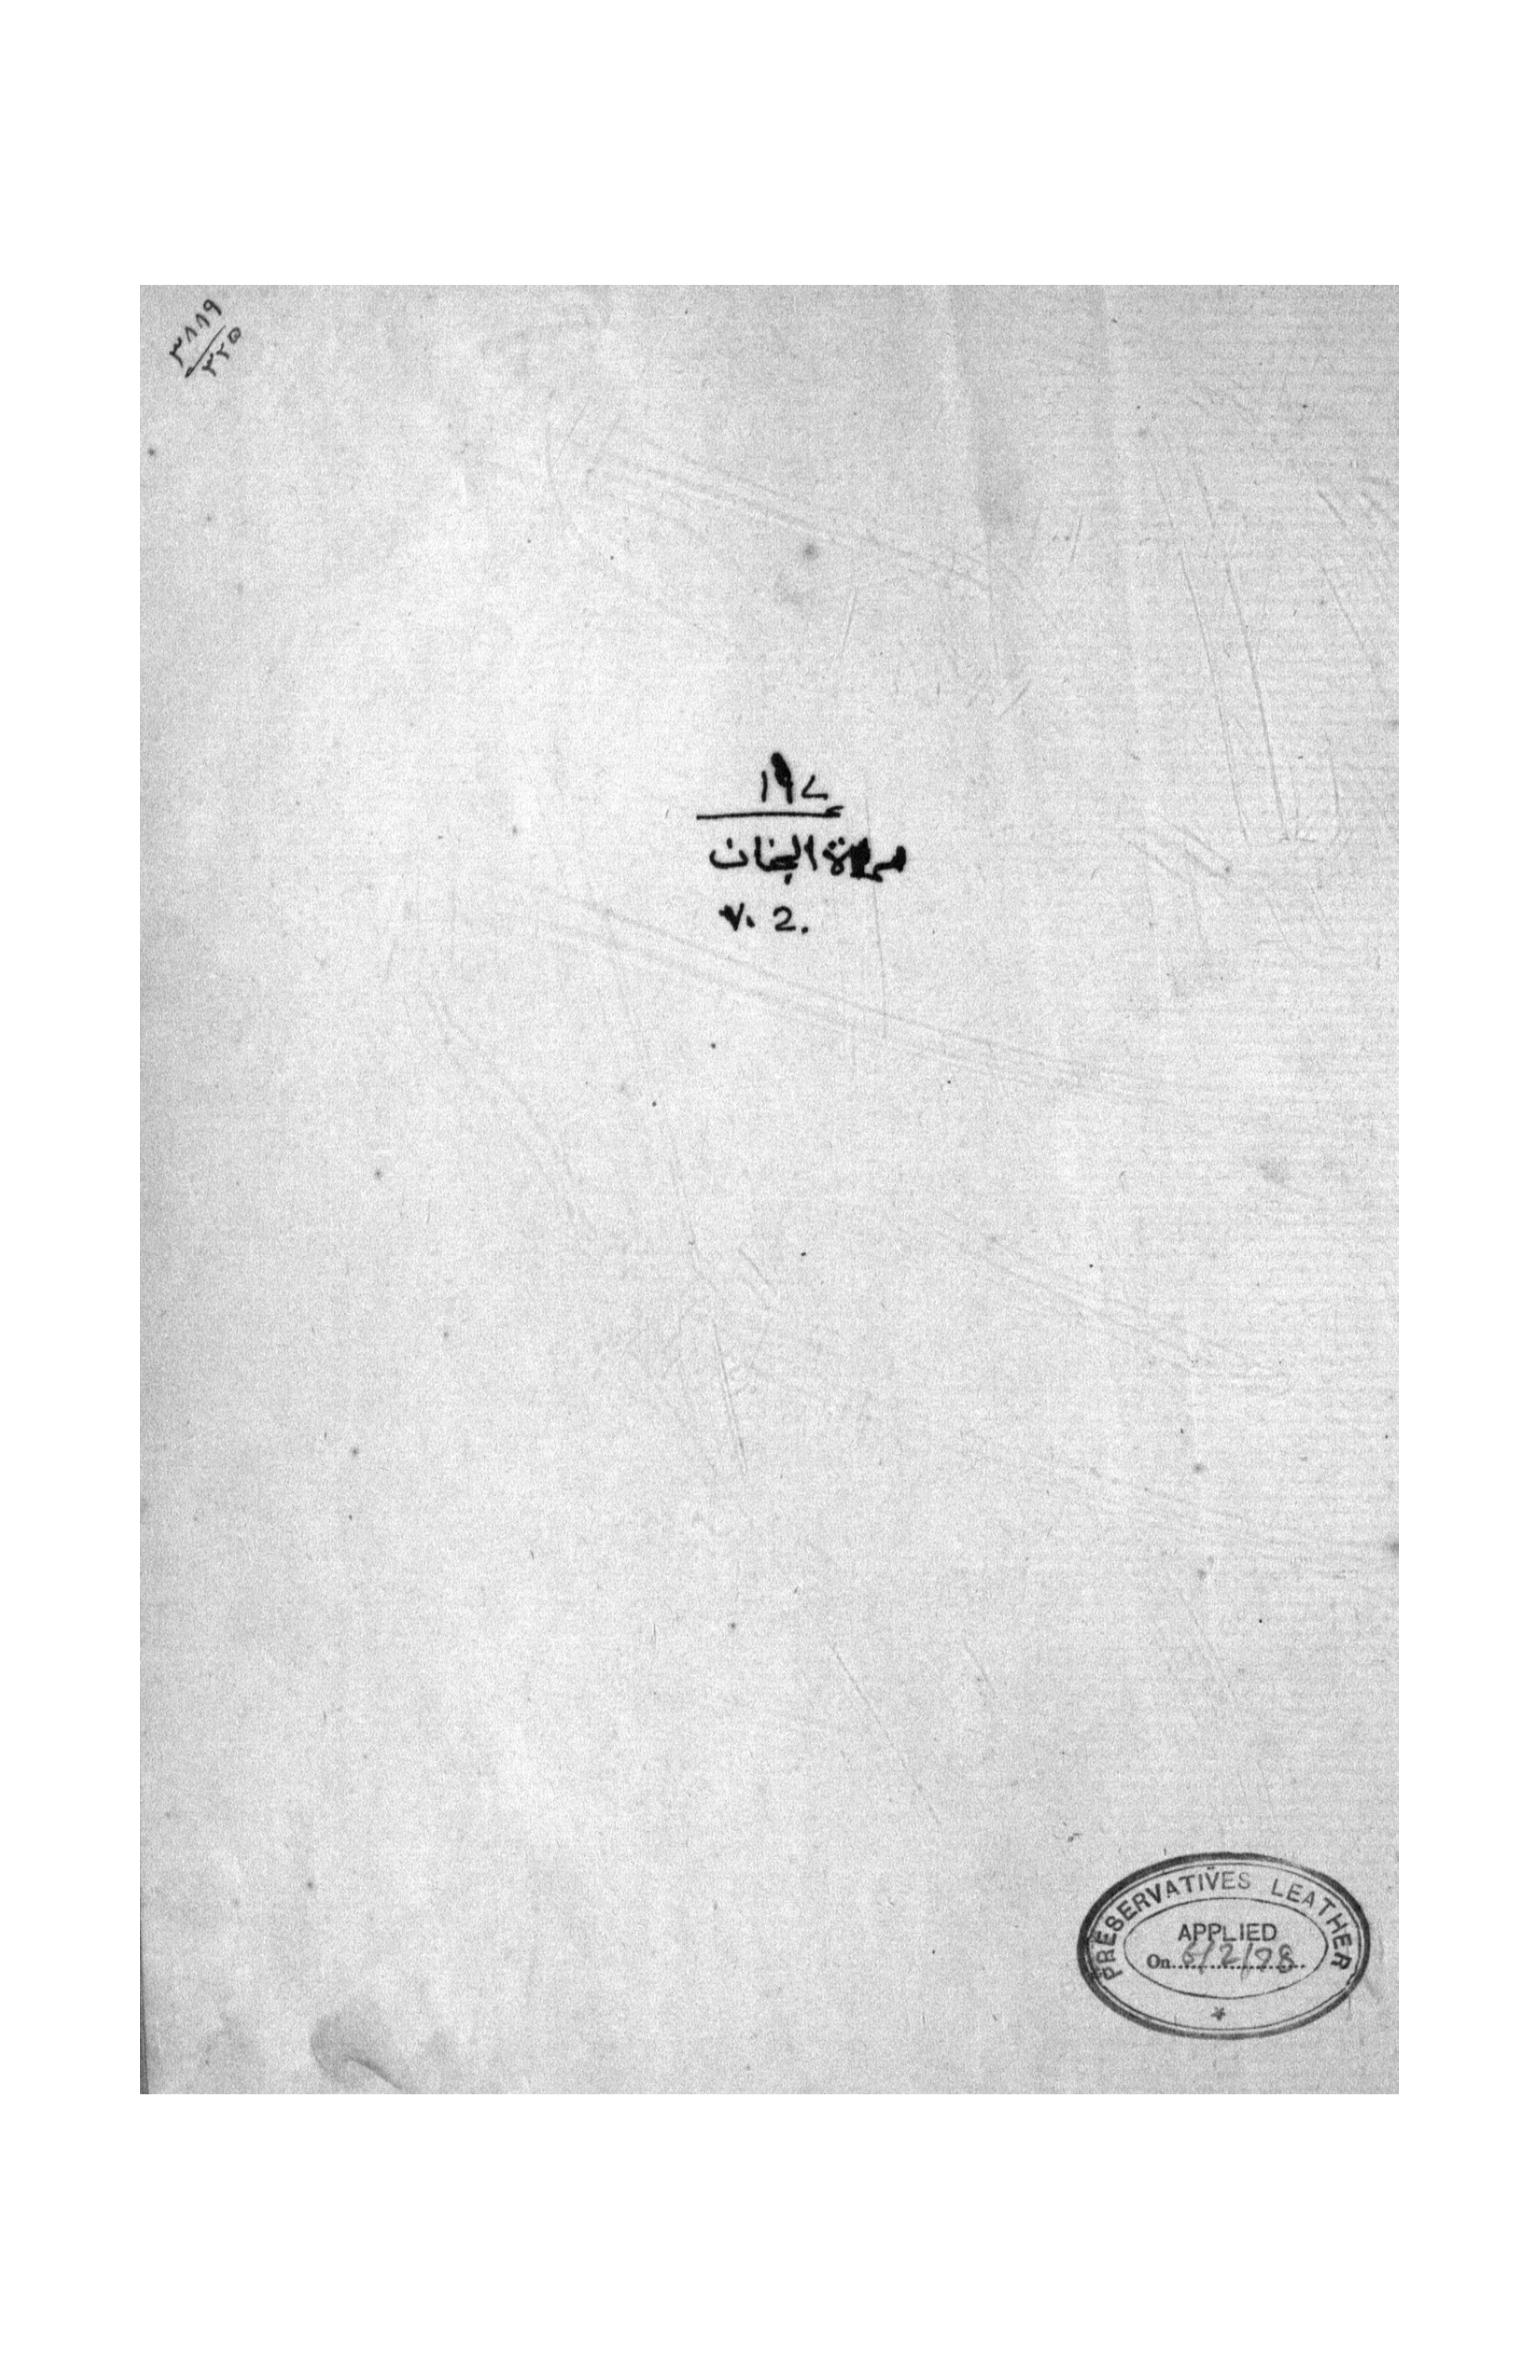 ٣٨٨٩
٣٢٥
١٩٧
مرآة الجنان
V. 2.
PRESERVATIVES LEATHER
APPLIED
On 6/2/78